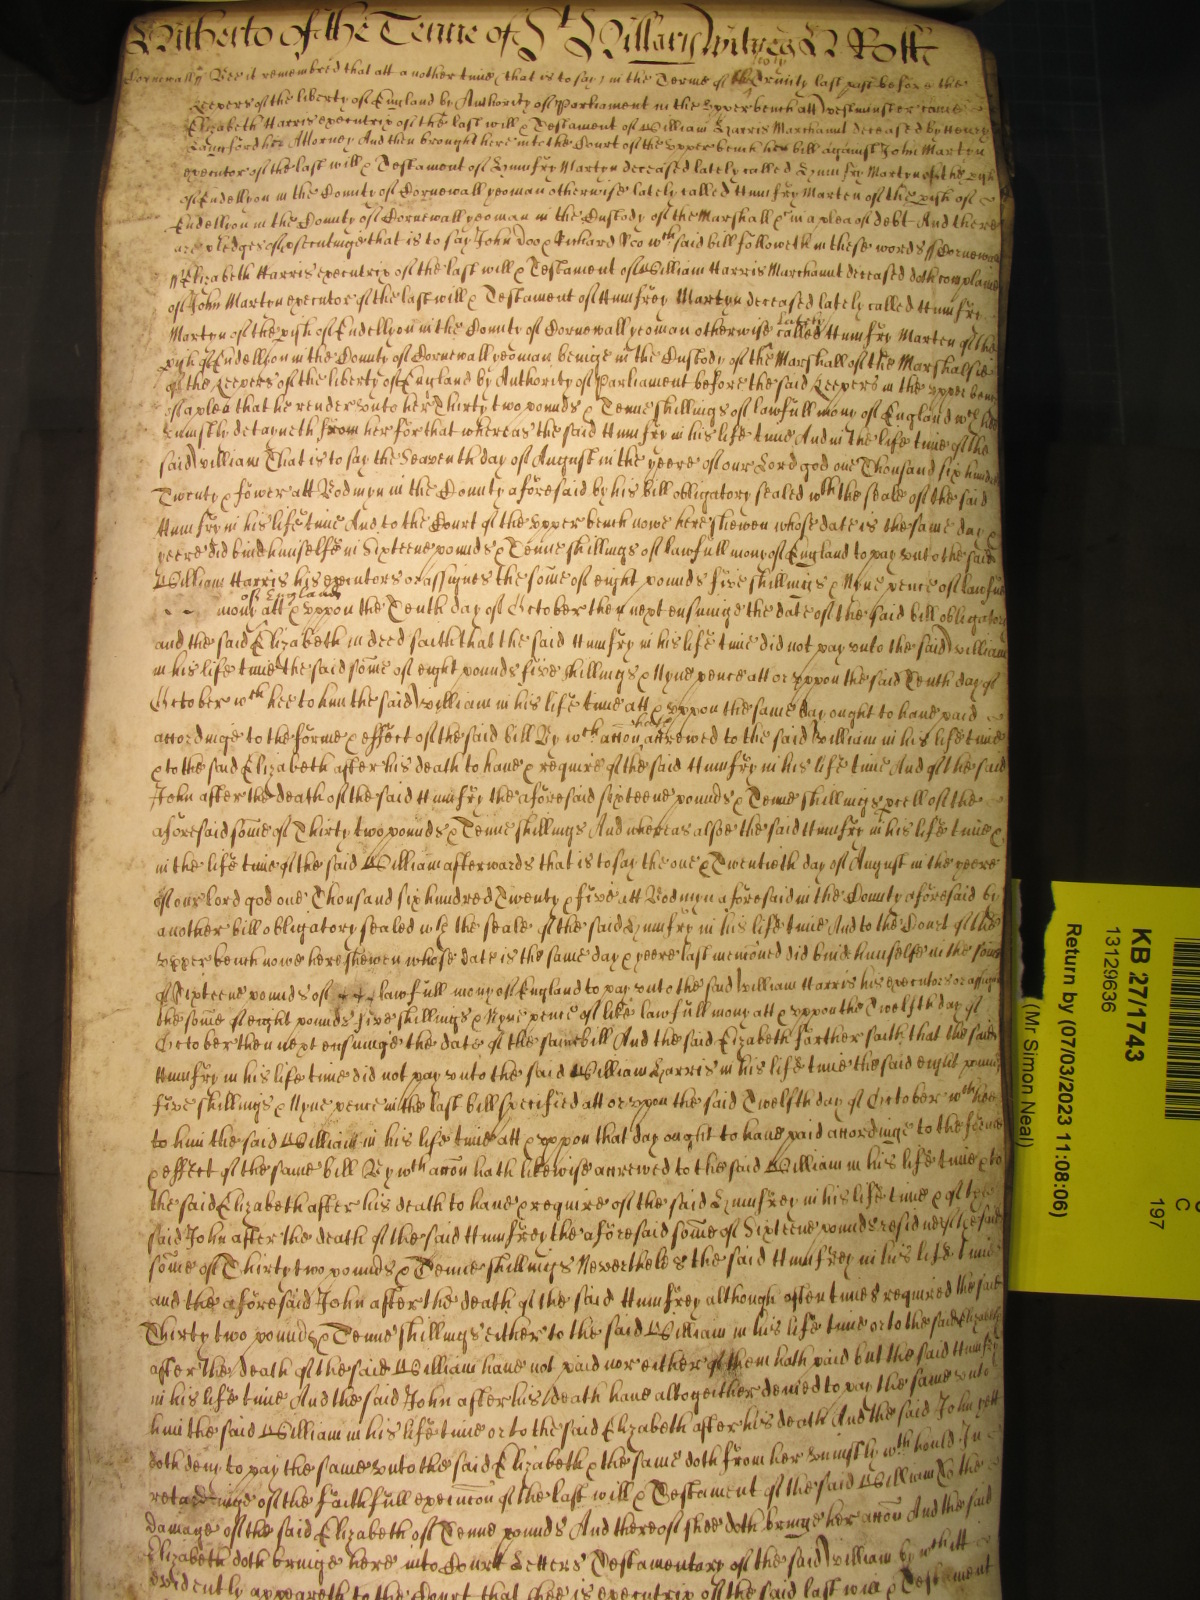 Hitherto of the Terme of St Hillary wittnes H Rolle
Cornewall ss Bee it remembred that att another time (that is to say) in the Terme of the holy Trinity last past before the
Keepers of the liberty of England by Authority of Parliament in the upper bench att Westminster came
Elizabeth Harris executrix of the last will & Testament of William Harris Marchant deceased by Henry
Langford her Attorney And then brought here into the Court of the upper bench her bill against John Marten
executor of the last will & Testament of Humfry Marten deceased lately called Humfry Marten of the pish
of Endellyon in the County of Cornewall yeoman otherwise lately called Humfry Marten of the pish of
Endellyon in the County of Cornewall yeoman in the Custody of the Marshall &c in a plea of debt And there
are pledges of psecutinge that is to say John Doo & Richard Roo wch said bill followeth in these words ss Cornewall
ss Elizabeth Harris executrix of the last will & Testament of William Harris Marchant deceased doth complaine
of John Marten executor of the last will & Testament of Humfrey Marten deceased lately called Humfrey
Marten of the pish of Endellyon in the County of Cornewall yeoman otherwise lately called Humfry Marten of the
pish of Endellyon in the County of Cornewall yeoman beinge in the Custody of the Marshall of the Marshalsie
of the Keepers of the liberty of England by Authority of Parliament before the said Keepers in the upper bench
of a plea that he render unto her Thirty two pounds & Tenne shillings of lawfull mony of England wch hee
uniustly detayneth from her for that whereas the said Humfry in his life time And in the life time of the
said William That is to say the Seaventh day of August in the yeere of our Lord god one Thousand six hundred
Twenty & fower att Bodmyn in the County aforesaid by his bill obligatory sealed wth the seale of the said
Humfry in his life time And to the Court of the upper bench nowe here shewen whose date is the same day &
yeere did bind himselfe in Sixteene pounds & Tenne shillings of lawfull mony of England to pay unto the said
William Harris his executors or assignes the some of eight pounds five shillings & Nyne pence of lawfull
mony of England att & uppon the Tenth day of October then next ensuinge the date of the said bill obligatory
and the said Elizabeth in deed saith that the said Humfry in his life time did not pay unto the said William
in his life time the said some of eight pounds five shillings & Nyne pence att or uppon the said Tenth day of
October wch hee to him the said William in his life time att & uppon the same day ought to have paid
accordinge to the forme & effect of the said bill By wch accon hath accrewed to the said William in his life time
& to the said Elizabeth after his death to have & require of the said Humfry in his life time And of the said
John after the death of the said Humfry the aforesaid sixteene pounds & Tenne shillings pcell of the
aforesaid some of Thirty two pounds & Tenne shillings And whereas alsoe the said Humfry in his life time &
in the life time of the said William afterwards that is to say the one & Twentieth day of August in the yeere
of our lord god one Thousand six hundred Twenty & five att Bodmyn aforesaid in the County aforesaid by
another bill obligatory sealed wth the seale of the said Humfry in his life time And to the Court of the
upper bench nowe here shewen whose date is the same day & yeere last menconed did bind himselfe in the some
of Sixteene pounds of lawfull mony of England to pay unto the said William Harris his executors or assignes
the some of eight pounds five shillings & Nyne pence of like lawfull mony att & uppon the Twelfth day of
October then next ensuinge the date of the same bill And the said Elizabeth farther saith that the said
Humfry in his life time did not pay unto the said William Harris in his life time the said eight pounds
five shillings & Nyne pence in the last bill specified att or uppon the said Twelfth day of October wch hee
to him the said William in his life time att & uppon that day ought to have paid accordinge to the forme
& effect of the same bill By wch accon hath likewise accrewed to the said William in his life time & to
the said Elizabeth after his death to have & require of the said Humfrey in his life time & of the
said John after the death of the said Humfrey the aforesaid some of Sixteene pounds residue of the said
some of Thirty two pounds & Tenne shillings Nevertheles the said Humfrey in his life time
and the aforesaid John after the death of the said Humfrey although often times required the said
Thirty two pounds & Tenne shillings either to the said William in his life time or to the said Elizabeth
after the death of the said William have not paid nor either of them hath paid but the said Humfry
in his life time And the said John after his death have altogeither denied to pay the same unto
him the said William in his life time or to the said Elizabeth after his death And the said John yett
doth deny to pay the same unto the said Elizabeth & the same doth from her uniustly wth hould In
retardinge of the faithfull execucon of the last will & Testament of the said William To the
damage of the said Elizabeth of Tenne pounds And thereof shee doth bringe her accon And the said
Elizabeth doth bringe here into Court Letters Testamentary of the said William by wch itt
evidently appeareth to the Court that shee is executrix of the said last will & Testament
KB 27/1743
13129636
Return by (07/03/2023 11:08:06)
(Mr Simon Neal)
C
197